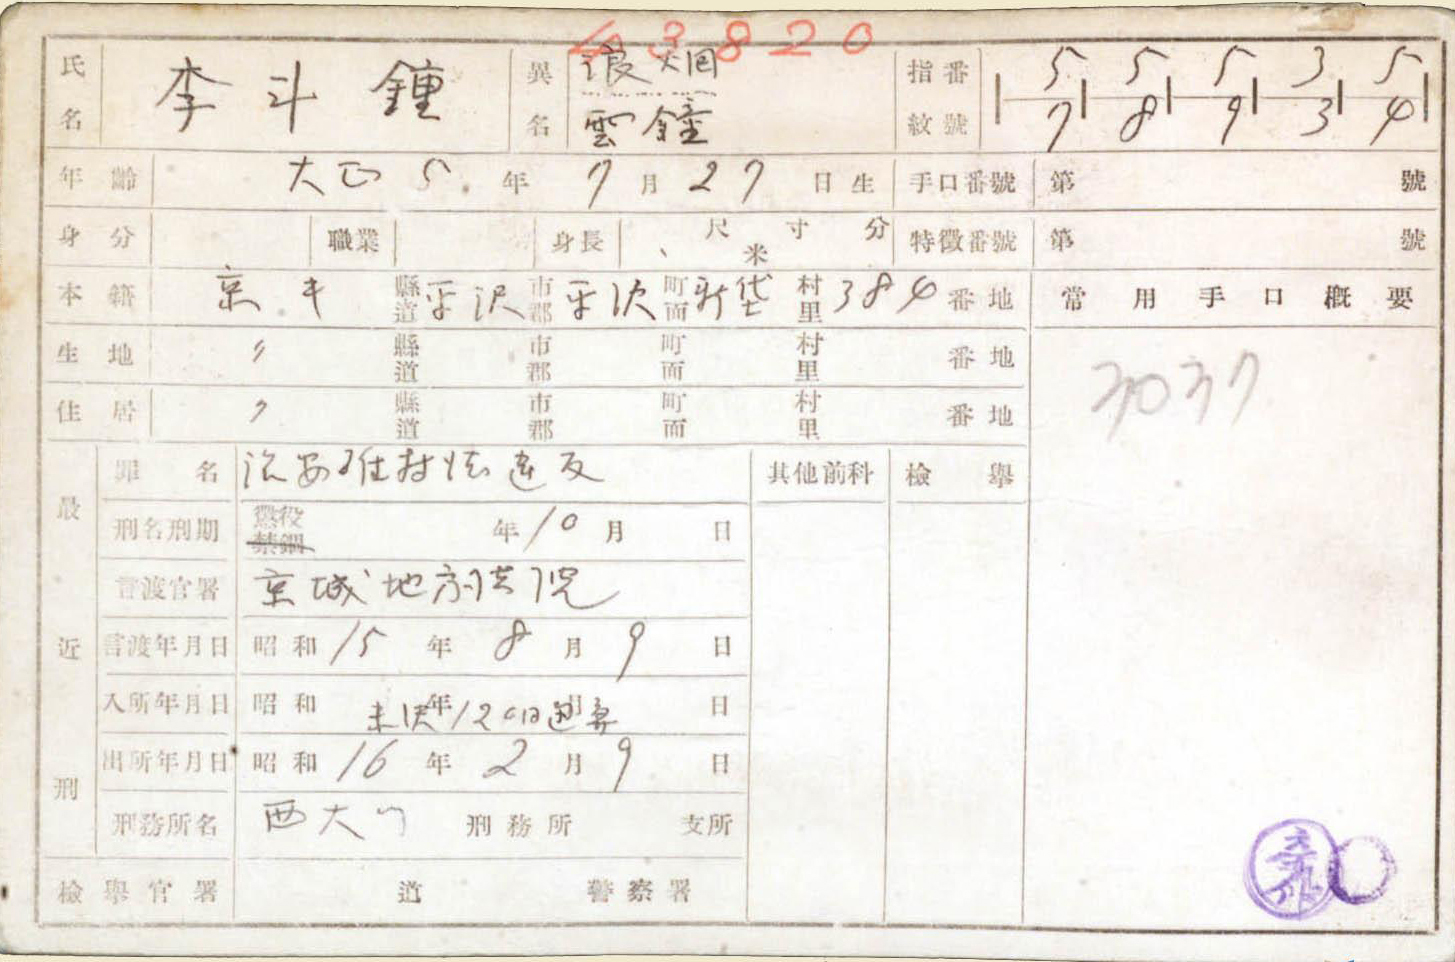 43820
氏名 李斗鍾 異名 雲鐘 指紋番號 5 5 5 3 5
7 8 9 3 4
年齡 大正5年7月27日生 手口番號 第 號
身分 職業 身長 尺寸分 米 特徵番號 第 號
本籍 京キ 縣道 平沢 市郡 平沢 町面 新垈 村里 384 番地 常用手口概要
生地 〃 縣道 市郡 町面 村里 番地
3037
住居 〃 縣道 市郡 町面 村里 番地
最近刑 罪名 治安維持法違反 其他前科 檢擧
刑名刑期 懲役 禁錮 年10月 日
言渡官署 京城地方法院
言渡年月日 昭和15年8月9日
入所年月日 昭和 年 月 日
未決120日通算
出所年月日 昭和16年2月9日
刑務所名 西大門 刑務所 支所
檢擧官署 道 警察署